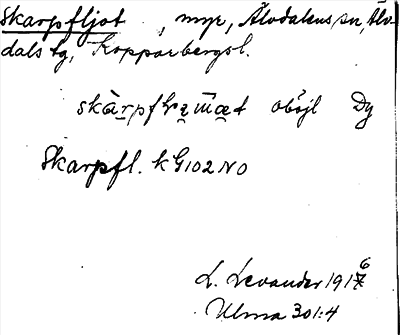 Skarpfljot, myr, Älvdalens sn, Älv-
dals tg, Kopparbergsl.
oböjl Dy
Skarpfl. k G102 NO
L. Levander 1916
Ulma 301:4